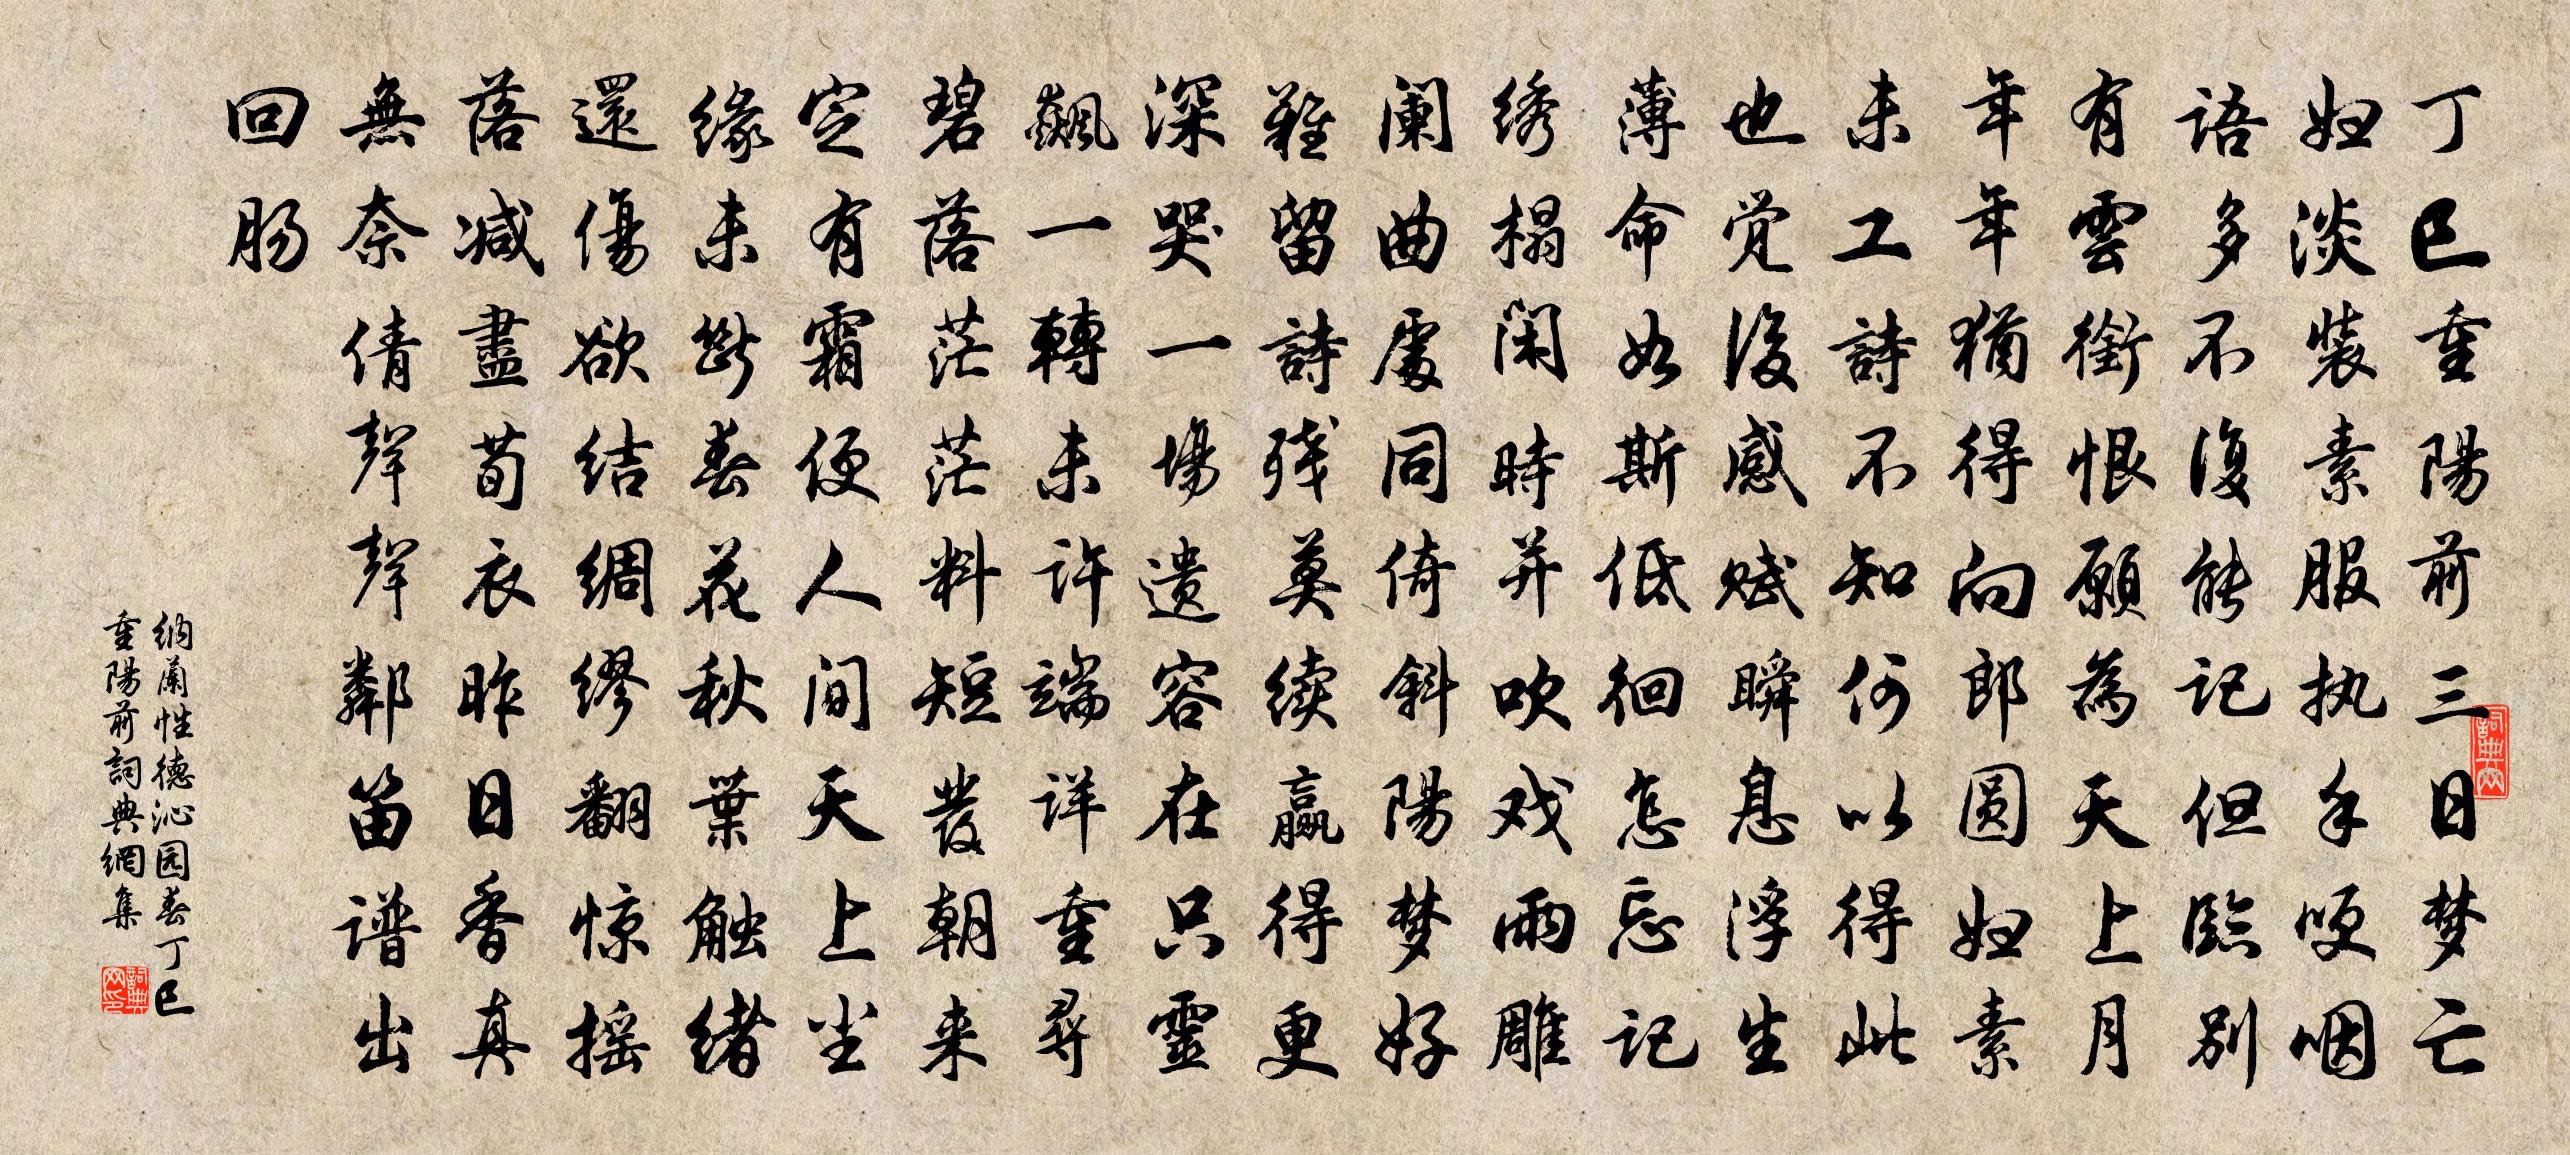 丁巳重陽前三日梦亡
妇淡装素服执手哽咽
語多不復能记但臨别
有雲銜恨願為天上月
年年猶得向郎圆妇素
未工詩不知何以得此
也觉後感赋瞬息浮生
薄命如斯低徊怎忘记
绣榻闲時并吹戏雨雕
阑曲處同倚斜陽梦好
難留詩残莫续赢得更
深哭一場遗容在只靈
飆一轉未许端详重尋
碧落茫茫料短發朝来
定有霜便人间天上尘
缘未斷春花秋葉触绪
還傷欲结绸缪翻惊摇
落减盡荀衣昨日香真
無奈倩聲聲鄰笛谱出
回肠
纳蘭性德沁园春丁巳
重陽前詞典網集
詞典网
詞典网印